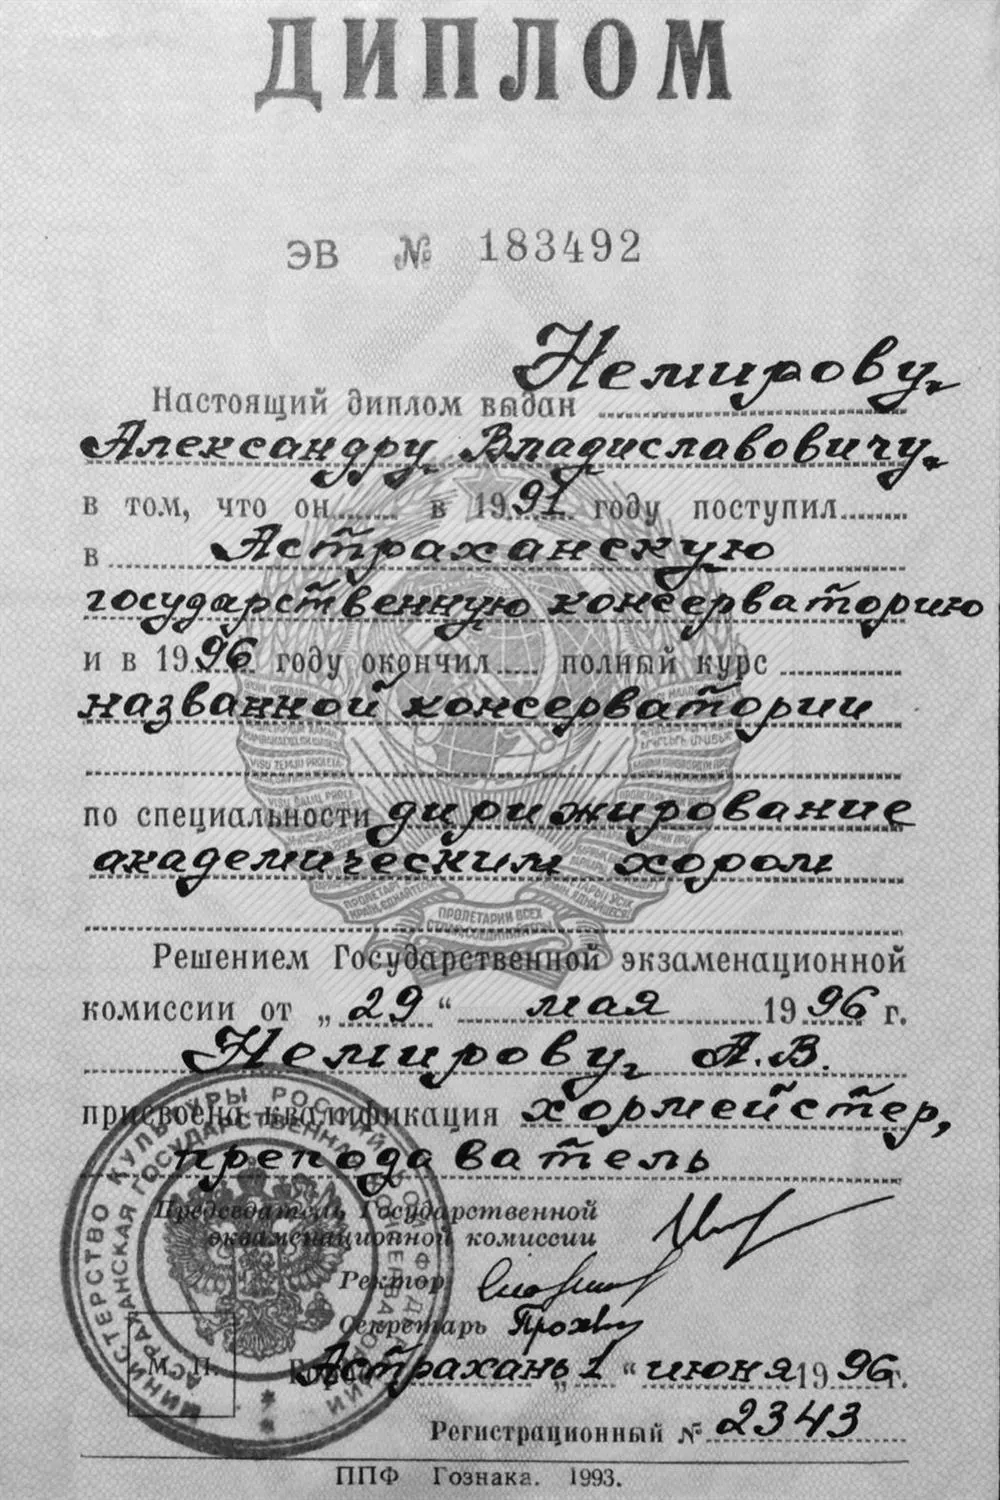 ДИПЛОМ
ЭВ № 183492
Настоящий диплом выдан Немирову
Александру Владиславовичу
в том, что он в 1991 году поступил
в Астраханскую
государственную консерваторию
и в 1996 году окончил полный курс
названной консерватории
по специальности дирижирование
академическим хором
Решением Государственной экзаменационной
комиссии от „29“ мая 1996 г.
Немирову А.В.
присвоена квалификация хормейстер,
преподаватель
Председатель Государственной
экзаменационной комиссии
Ректор
Секретарь
М. П.
Астрахань „1“ июня 1996 г.
Регистрационный № 2343
ППФ Гознака. 1993.
МИНИСТЕРСТВО КУЛЬТУРЫ РОССИЙСКОЙ
АСТРАХАНСКАЯ ГОСУДАРСТВЕННАЯ КОНСЕРВАТОРИЯ
ПРОЛЕТАРИИ ВСЕХ
СТРАН, СОЕДИНЯЙТЕСЬ